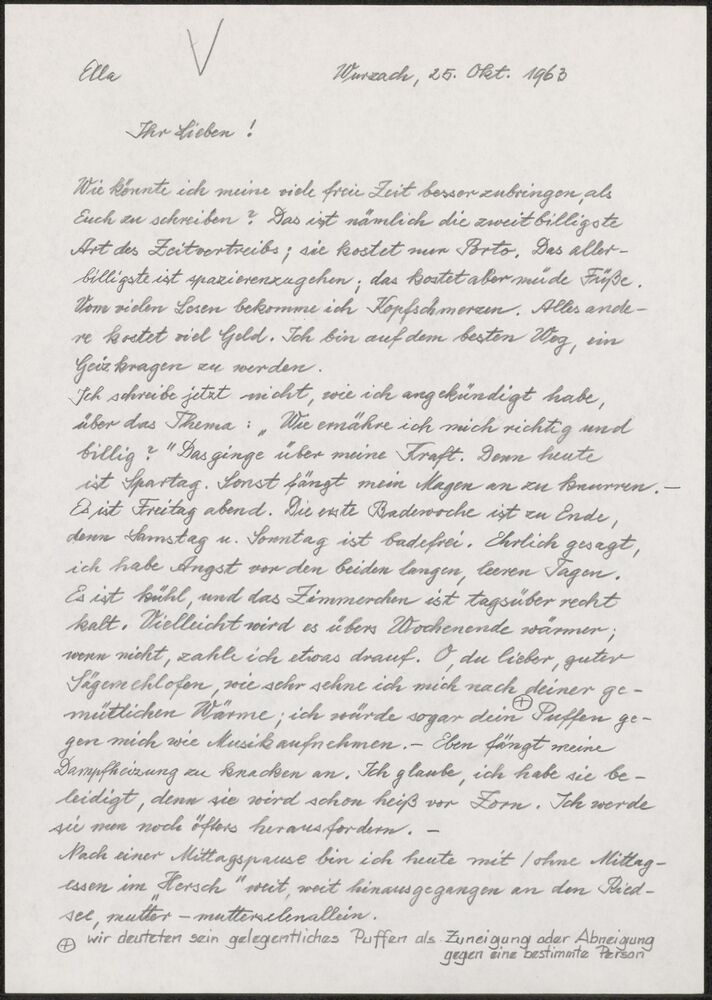 Ella
Wurzach, 25. Okt. 1963
Ihr Lieben !
Wie könnte ich meine viele freie Zeit besser zubringen, als
Euch zu schreiben ? Das ist nämlich die zweitbilligste
Art des Zeitvertreibs ; sie kostet nur Porto. Das aller-
billigste ist spazierenzugehen ; das kostet aber müde Füße.
Vom vielen Lesen bekomme ich Kopfschmerzen. Alles ande-
re kostet viel Geld. Ich bin auf dem besten Weg, ein
Geizkragen zu werden.
Ich schreibe jetzt nicht, wie ich angekündigt habe,
über das Thema : „ Wie ernähre ich mich richtig und
billig ? " Das ginge über meine Kraft. Denn heute
ist Spartag. Sonst fängt mein Magen an zu knurren. –
Es ist Freitag abend. Die erste Badewoche ist zu Ende,
denn Samstag u. Sonntag ist badefrei. Ehrlich gesagt,
ich habe Angst vor den beiden langen, leeren Tagen.
Es ist kühl, und das Zimmerchen ist tagsüber recht
kalt. Vielleicht wird es übers Wochenende wärmer ;
wenn nicht, zahle ich etwas drauf. O, du lieber, guter
Sägemehlofen, wie sehr sehne ich mich nach deiner ge-
mütlichen Wärme ; ich würde sogar dein ⊕ Puffen ge-
gen mich wie Musik aufnehmen. – Eben fängt meine
Dampfheizung zu knacken an. Ich glaube, ich habe sie be-
leidigt, denn sie wird schon heiß vor Zorn. Ich werde
sie nun noch öfters herausfordern. –
Nach einer Mittagspause bin ich heute mit / ohne Mittag-
essen im „Hersch" weit, weit hinausgegangen an den Ried-
see, mutter – mutterselenallein.
⊕ wir deuteten sein gelegentliches Puffen als Zuneigung oder Abneigung
gegen eine bestimmte Person